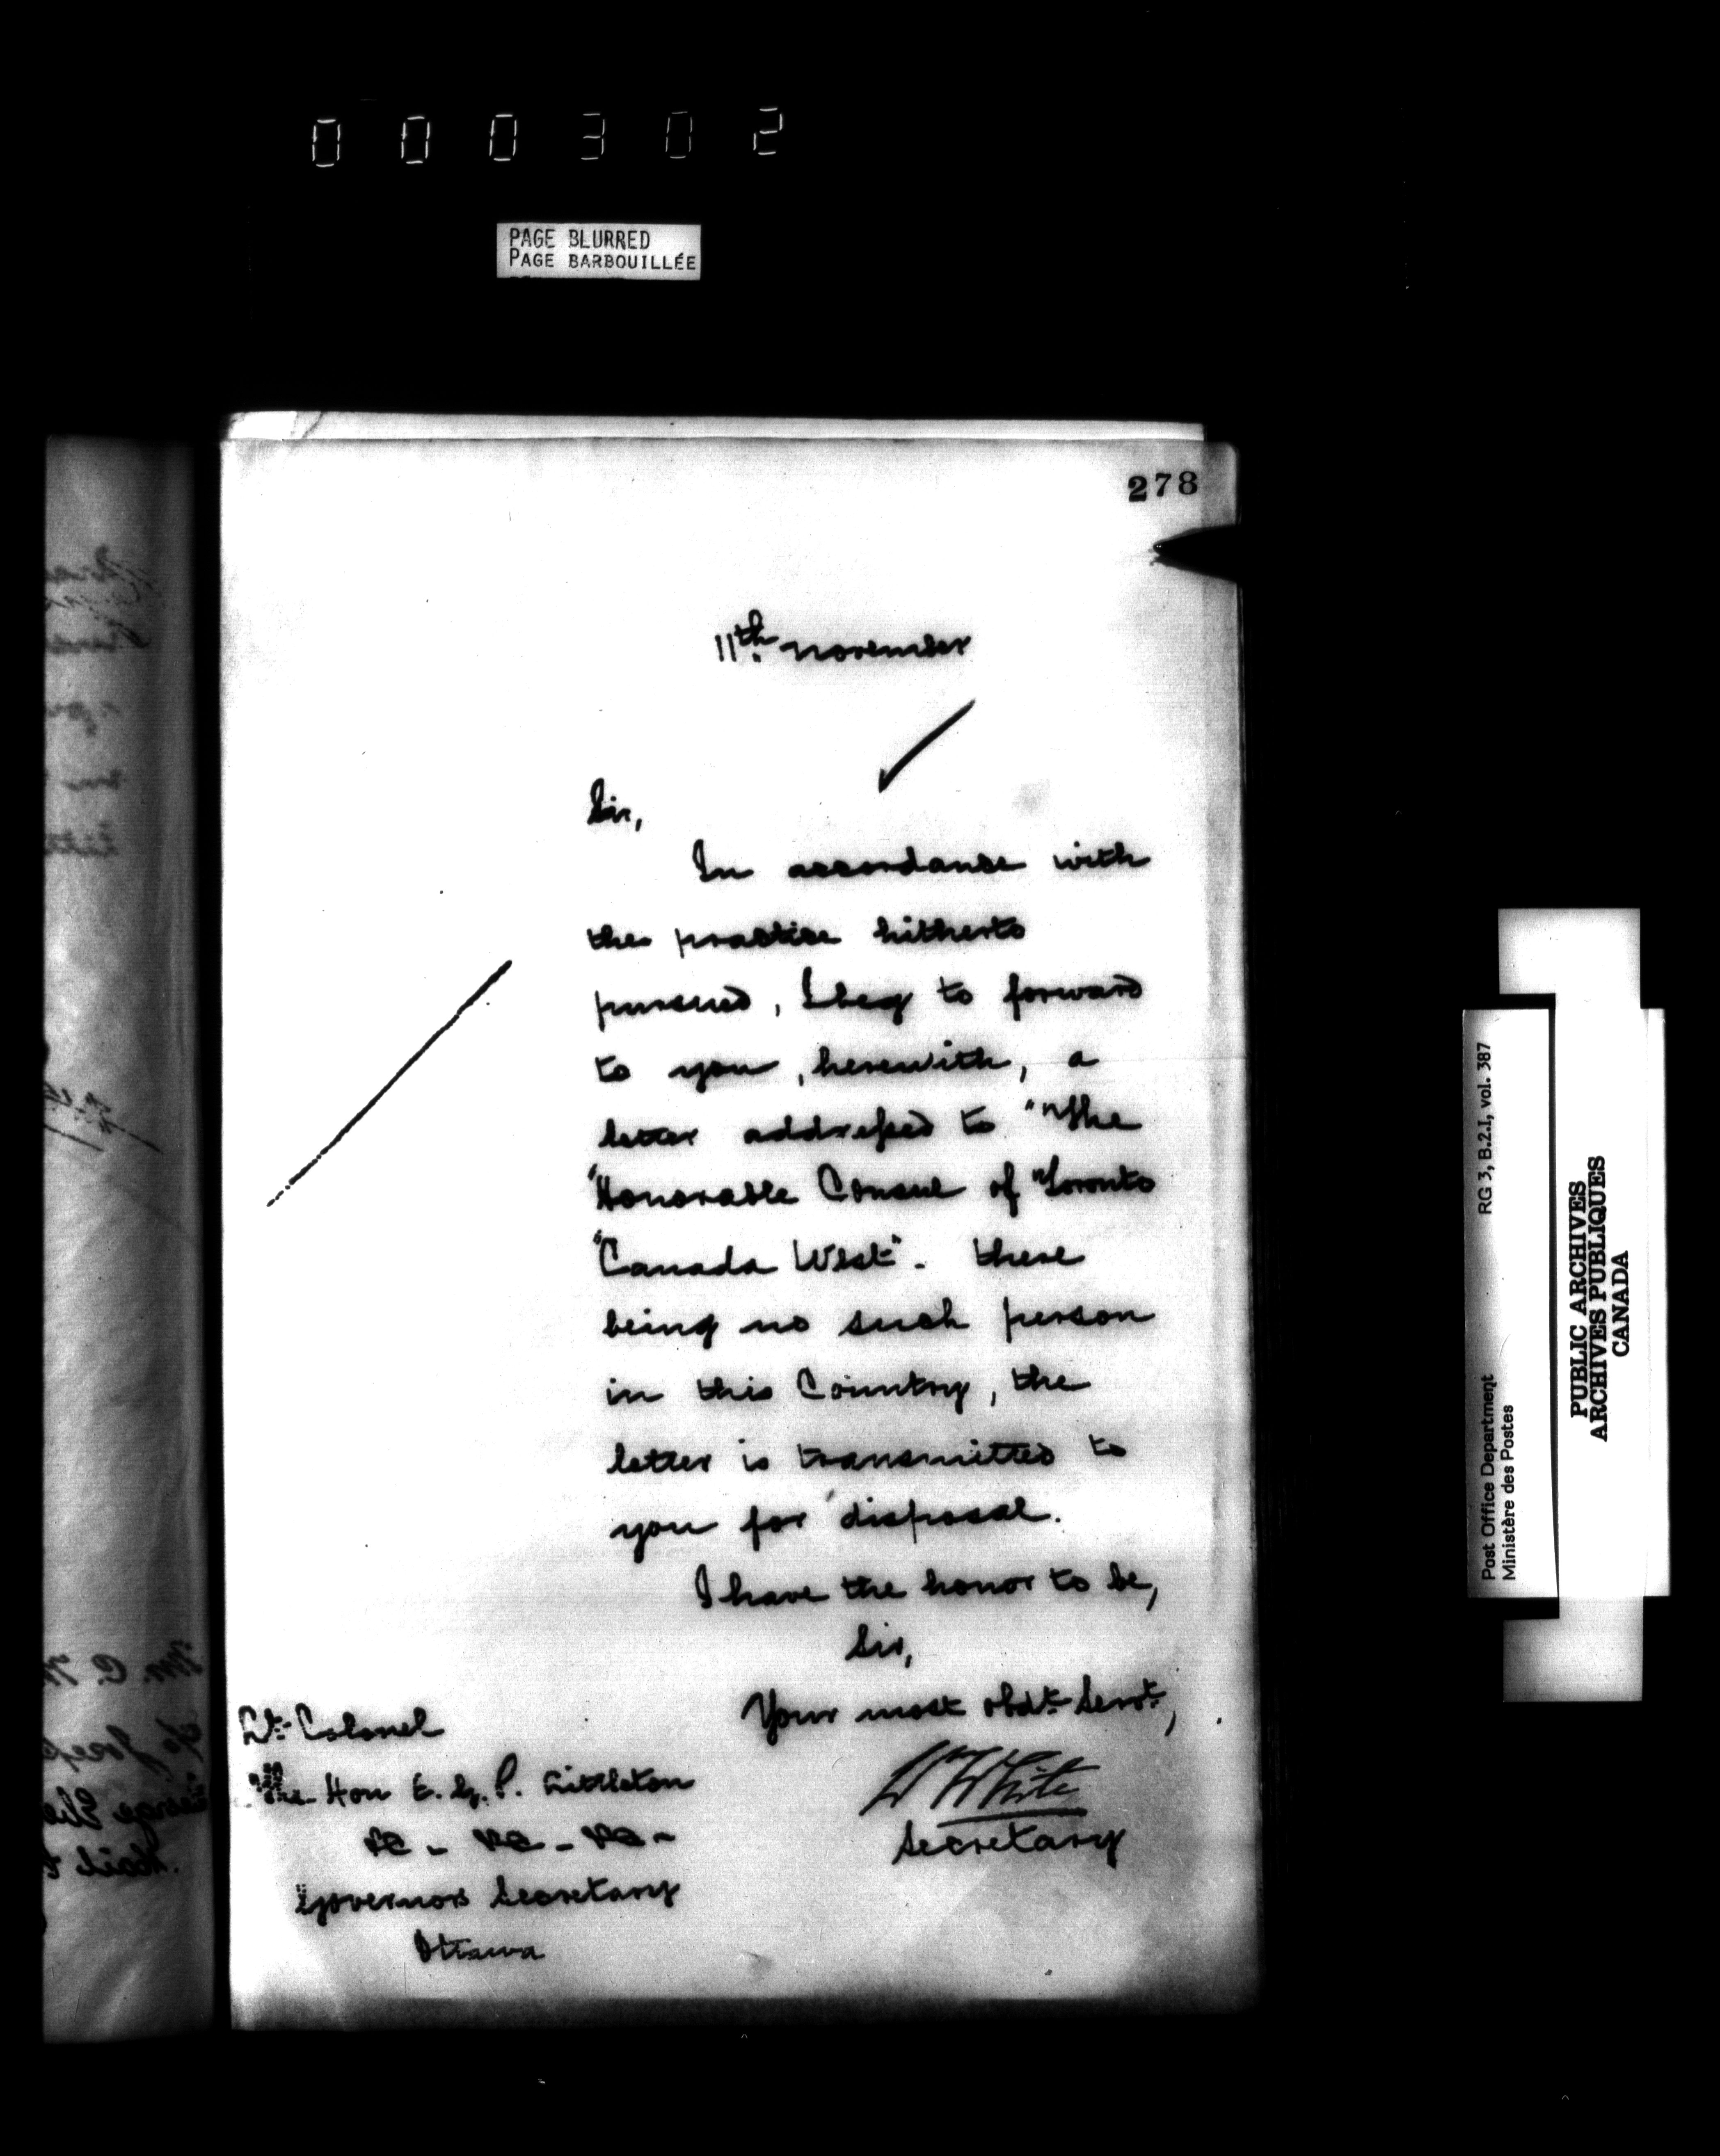 000302
PAGE BLURRED
PAGE BARBOUILLÉE
278
11th November
Sir,
In accordance with
the practise hitherto
pursued, I beg to forward
to you, herewith, a
letter addressed to "The
"Honorable Consul of Toronto
"Canada West". There
being no such person
in this Country, the
letter is transmitted to
you for disposal.
I have the honor to be,
Sir,
Your most obdt. Servt.,
W White
Secretary
Lt. Colonel
The Hon E. G. P. Littleton
&c - &c - &c -
Governor's Secretary
Ottawa
RG 3, B.2.I, vol. 387
Post Office Department
Ministère des Postes
PUBLIC ARCHIVES
ARCHIVES PUBLIQUES
CANADA